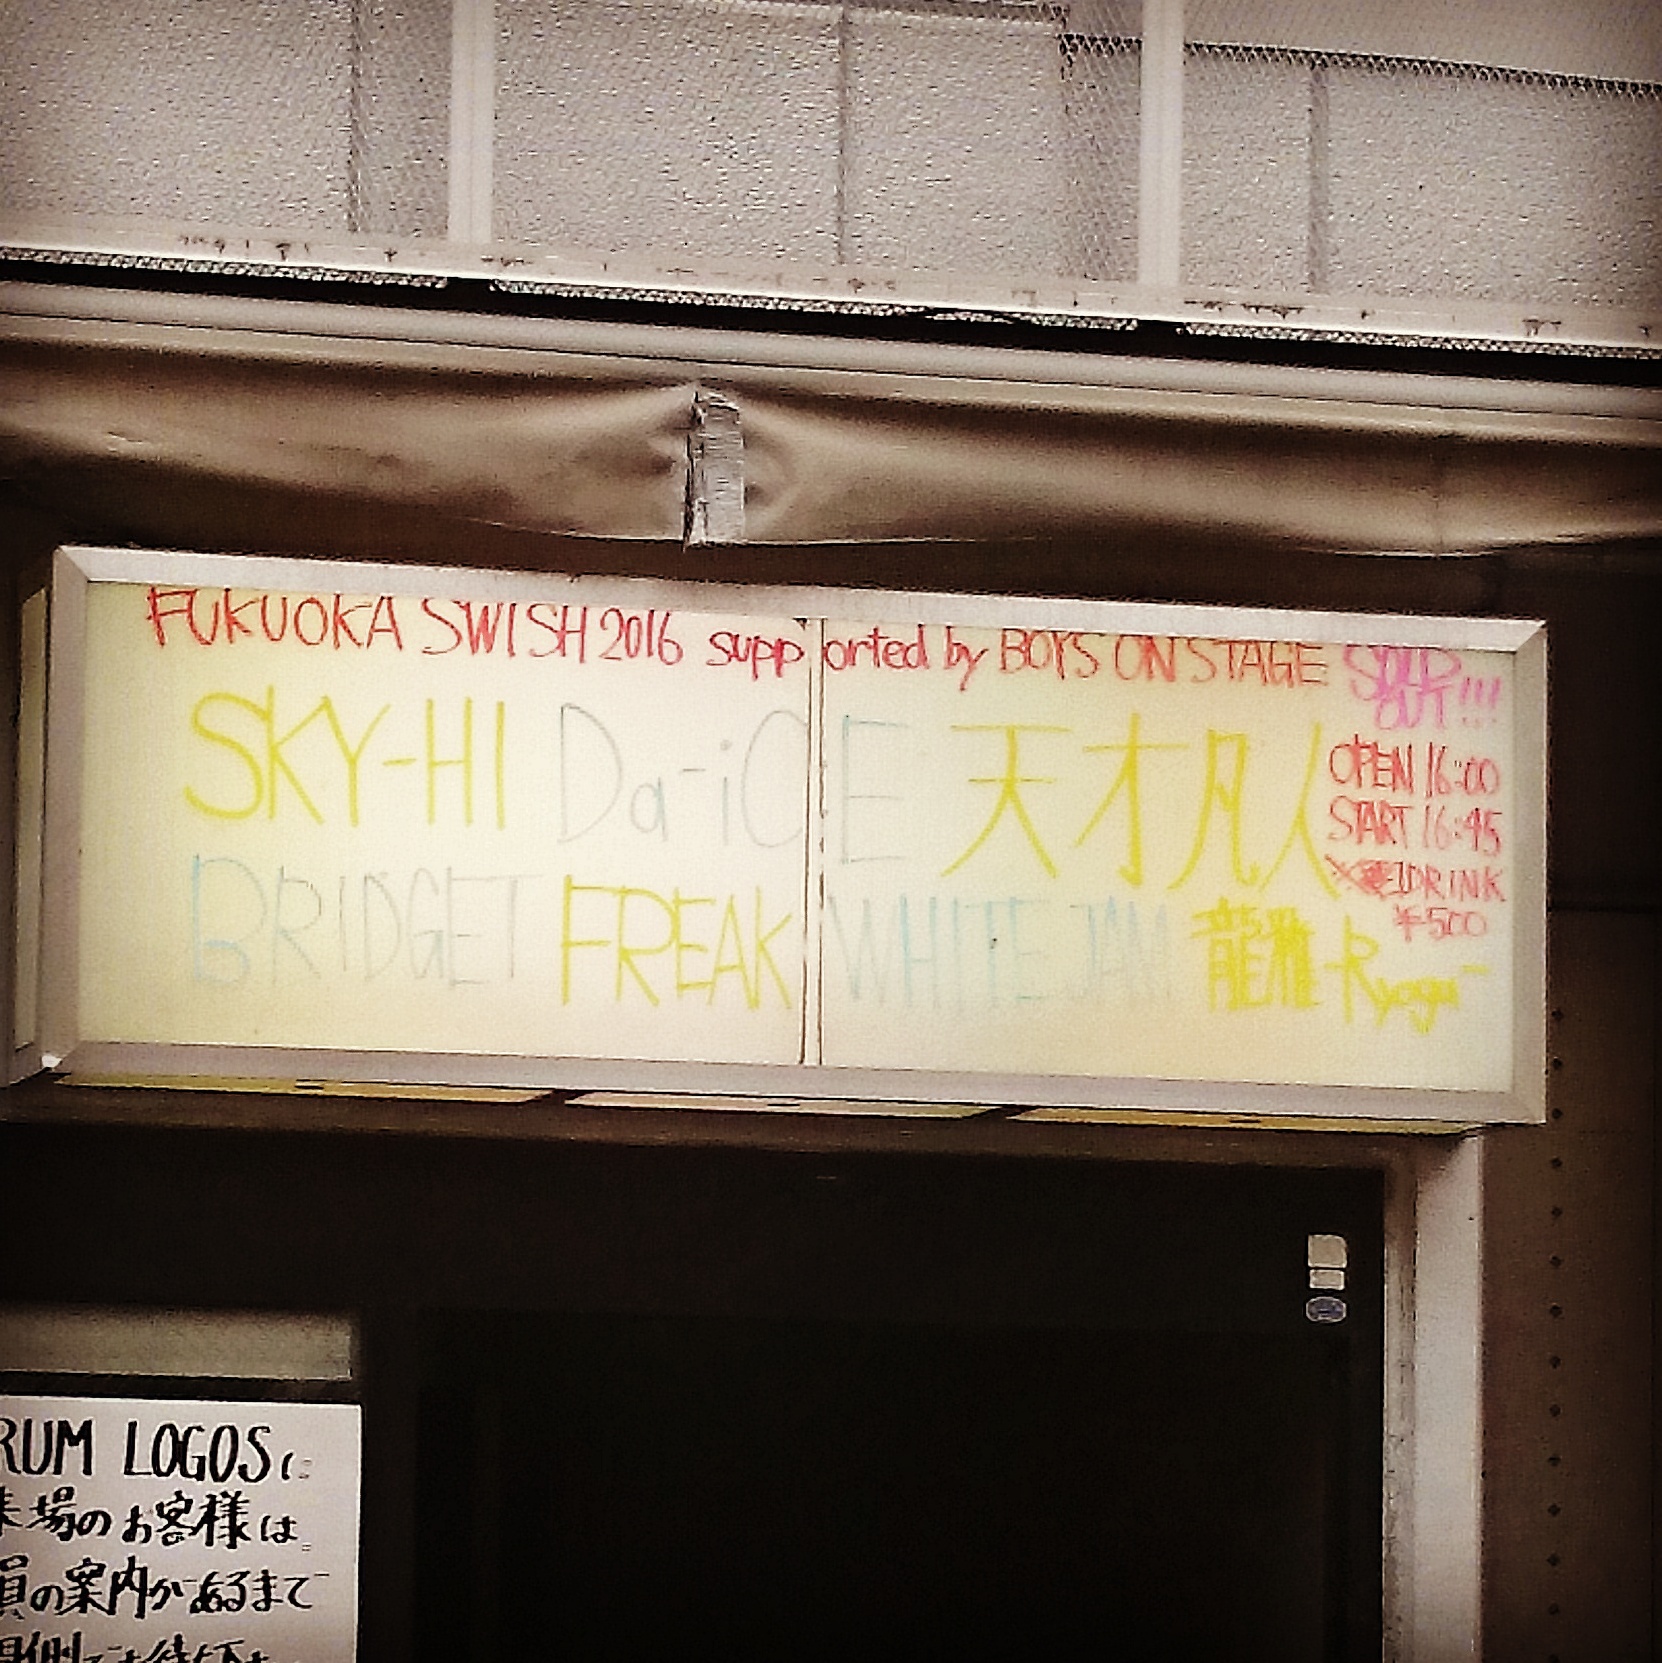 FUKUOKA SWISH 2016 supported by BOYS ON STAGE
SOLD OUT!!!
SKY-HI Da-iCE 天才凡人
BRIDGET FREAK WHITE JAM 龍雅-Ryoga-
OPEN 16:00
START 16:45
1DRINK
¥500
RUM LOGOSに
来場のお客様は
員の案内があるまで